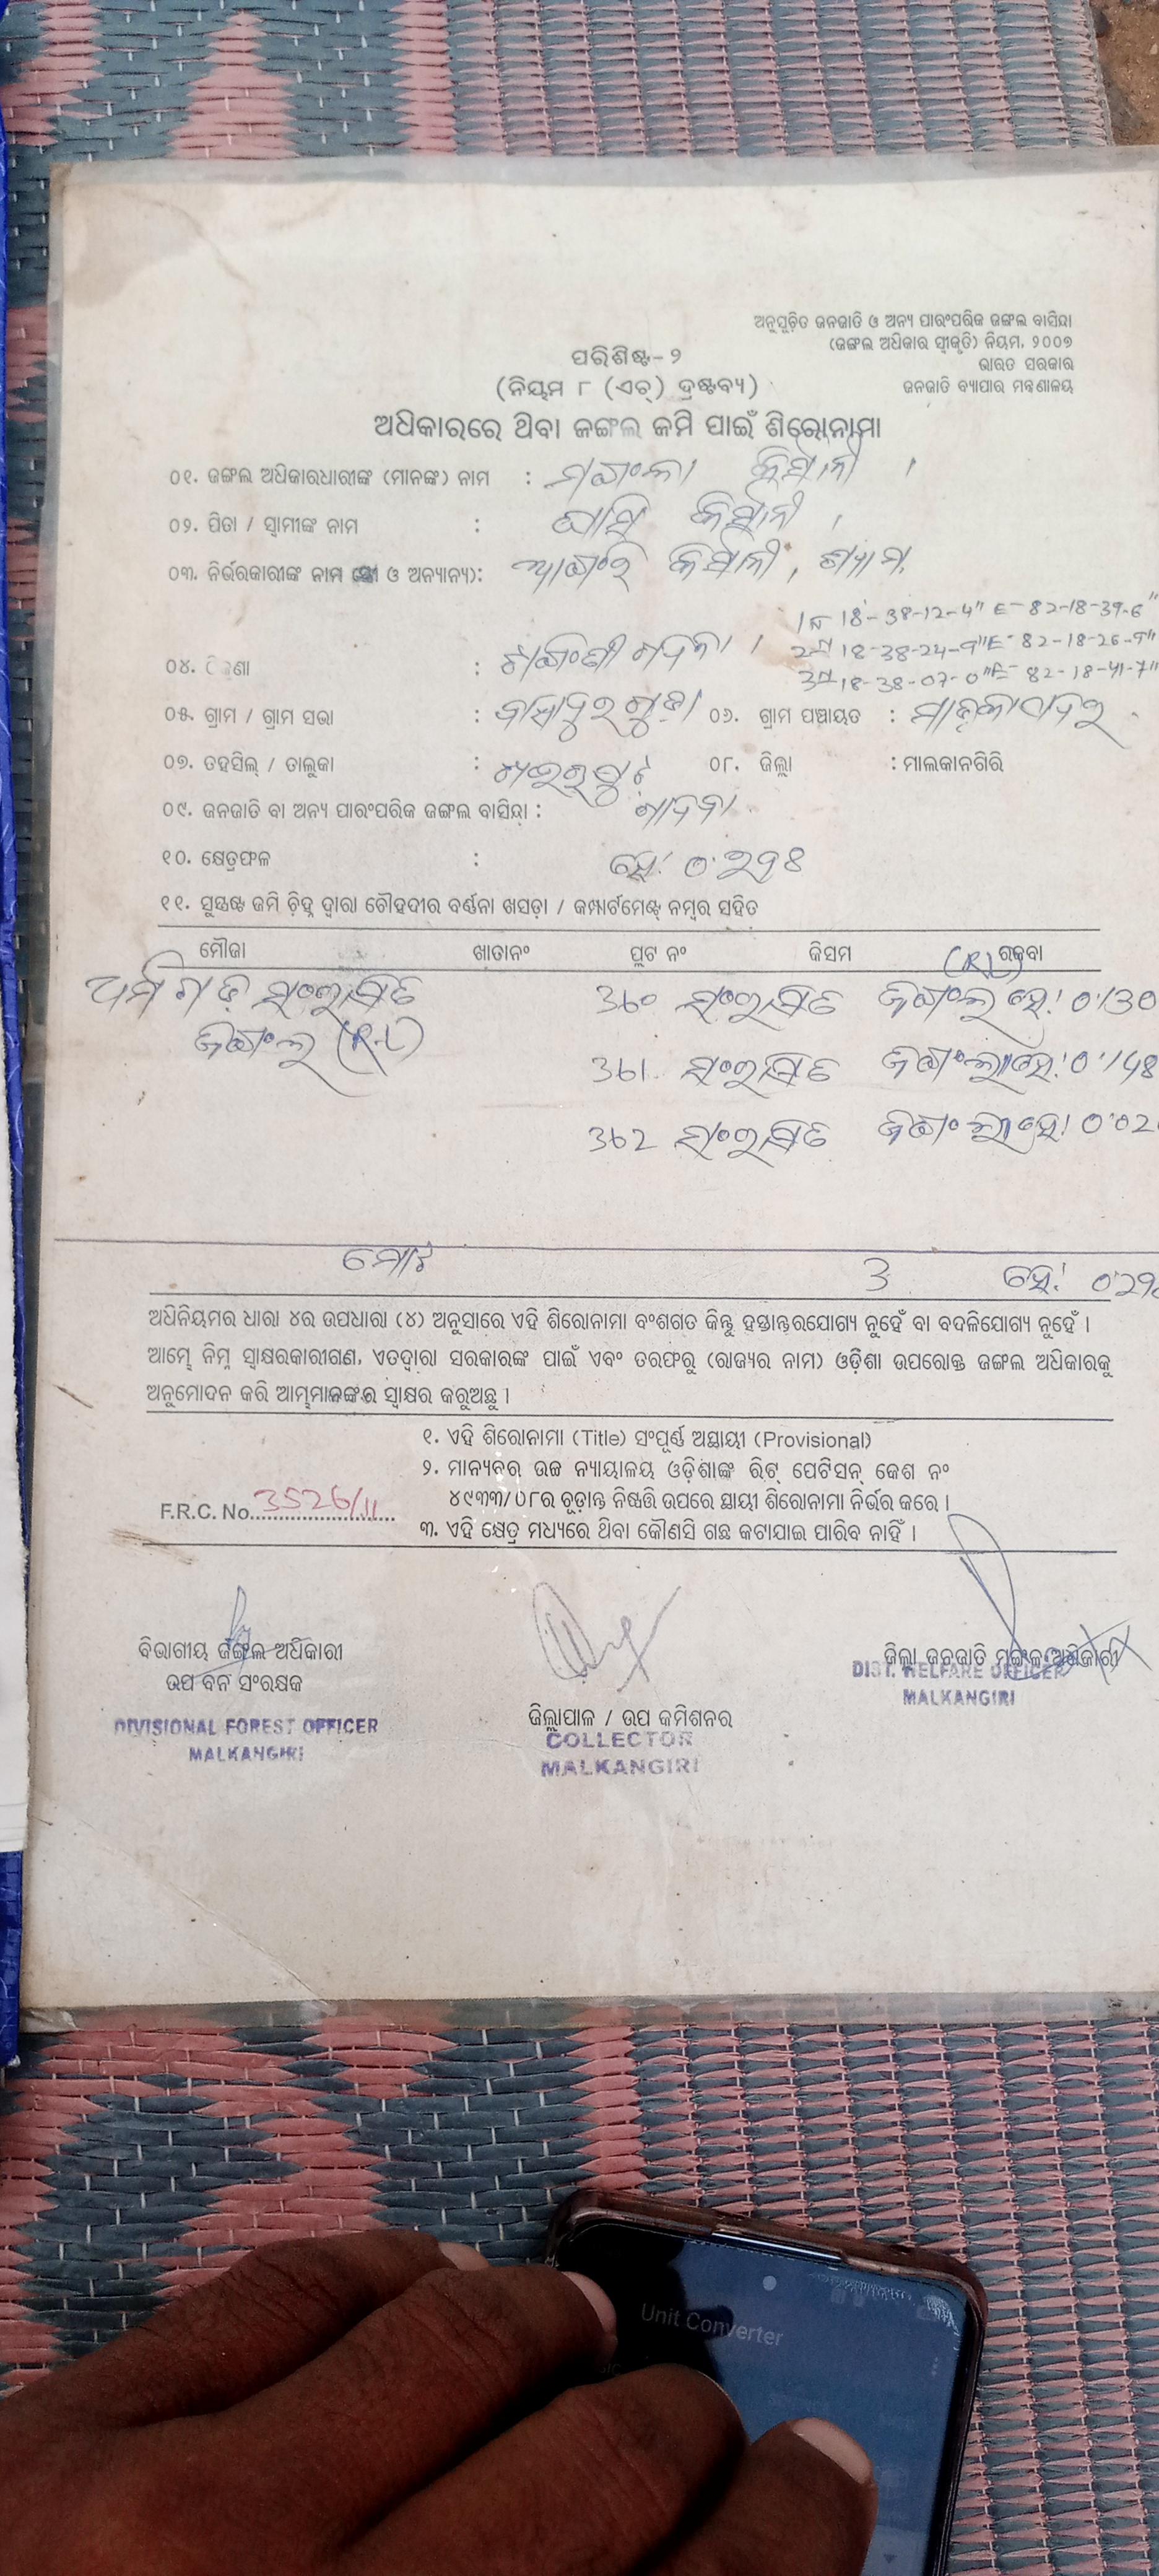 ଅନୁସୂଚିତ ଜନଜାତି ଓ ଅନ୍ୟ ପାରଂପରିକ ଜଙ୍ଗଲ ବାସିନ୍ଦା
(ଜଙ୍ଗଲ ଅଧିକାର ସ୍ୱୀକୃତି) ନିୟମ, ୨୦୦୭
ଭାରତ ସରକାର
ଜନଜାତି ବ୍ୟାପାର ମନ୍ତ୍ରଣାଳୟ
ପରିଶିଷ୍ଟ-୨
(ନିୟମ ୮ (ଏଚ୍) ଦ୍ରଷ୍ଟବ୍ୟ)
ଅଧିକାରରେ ଥିବା ଜଙ୍ଗଲ ଜମି ପାଇଁ ଶିରୋନାମା
୦୧. ଜଙ୍ଗଲ ଅଧିକାରଧାରୀଙ୍କ (ମାନଙ୍କ) ନାମ :
୦୨. ପିତା / ସ୍ୱାମୀଙ୍କ ନାମ :
୦୩. ନିର୍ଭରକାରୀଙ୍କ ନାମ ଓ ଅନ୍ୟାନ୍ୟ):
18-38-12-4" E- 82-18-39-6"
18-38-24-9" E- 82-18-26-9"
18-38-07-0" E- 82-18-41-7"
୦୪. :
୦୫. ଗ୍ରାମ / ଗ୍ରାମ ସଭା : ୦୬. ଗ୍ରାମ ପଞ୍ଚାୟତ :
୦୭. ତହସିଲ୍ / ତାଲୁକା : ୦୮. ଜିଲ୍ଲା : ମାଲକାନଗିରି
୦୯. ଜନଜାତି ବା ଅନ୍ୟ ପାରଂପରିକ ଜଙ୍ଗଲ ବାସିନ୍ଦା :
୧୦. କ୍ଷେତ୍ରଫଳ : ହେ: ୦.୨୯୪
୧୧. ସୁସ୍ପଷ୍ଟ ଜମି ଚିହ୍ନ ଦ୍ୱାରା ଚୌହଦୀର ବର୍ଣ୍ଣନା ଖସଡ଼ା / କମ୍ପାର୍ଟମେଣ୍ଟ ନମ୍ବର ସହିତ
ମୌଜା ଖାତାନଂ ପ୍ଲଟ ନଂ କିସମ ରକବା
(R.L)
ସଂରକ୍ଷିତ 360 ସଂରକ୍ଷିତ ଜଙ୍ଗଲ ହେ: 0.130
ଜଙ୍ଗଲ (R.L)
361 ସଂରକ୍ଷିତ ଜଙ୍ଗଲ ହେ: 0.148
362 ସଂରକ୍ଷିତ ଜଙ୍ଗଲ ହେ: 0.02
ମୋଟ 3 ହେ:
ଅଧିନିୟମର ଧାରା ୪ର ଉପଧାରା (୪) ଅନୁସାରେ ଏହି ଶିରୋନାମା ବଂଶଗତ କିନ୍ତୁ ହସ୍ତାନ୍ତରଯୋଗ୍ୟ ନୁହେଁ ବା ବଦଳିଯୋଗ୍ୟ ନୁହେଁ ।
ଆମ୍ଭେ ନିମ୍ନ ସ୍ୱାକ୍ଷରକାରୀଗଣ, ଏତଦ୍ୱାରା ସରକାରଙ୍କ ପାଇଁ ଏବଂ ତରଫରୁ (ରାଜ୍ୟର ନାମ) ଓଡ଼ିଶା ଉପରୋକ୍ତ ଜଙ୍ଗଲ ଅଧିକାରକୁ
ଅନୁମୋଦନ କରି ଆମ୍ଭମାନଙ୍କର ସ୍ୱାକ୍ଷର କରୁଅଛୁ ।
୧. ଏହି ଶିରୋନାମା (Title) ସଂପୂର୍ଣ୍ଣ ଅସ୍ଥାୟୀ (Provisional)
୨. ମାନ୍ୟବର ଉଚ୍ଚ ନ୍ୟାୟାଳୟ ଓଡ଼ିଶାଙ୍କ ରିଟ୍ ପେଟିସନ୍ କେଶ ନଂ
୪୯୩୩/୦୮ର ଚୂଡ଼ାନ୍ତ ନିଷ୍ପତ୍ତି ଉପରେ ସ୍ଥାୟୀ ଶିରୋନାମା ନିର୍ଭର କରେ ।
F.R.C. No. 3526/11
୩. ଏହି କ୍ଷେତ୍ର ମଧ୍ୟରେ ଥିବା କୌଣସି ଗଛ କଟାଯାଇ ପାରିବ ନାହିଁ ।
ବିଭାଗୀୟ ଜଙ୍ଗଲ ଅଧିକାରୀ
ଉପ ବନ ସଂରକ୍ଷକ
DIVISIONAL FOREST OFFICER
MALKANGIRI
ଜିଲ୍ଲାପାଳ / ଉପ କମିଶନର
COLLECTOR
MALKANGIRI
ଜିଲ୍ଲା ଜନଜାତି ମଙ୍ଗଳ ଅଧିକାରୀ
DIST. WELFARE OFFICER
MALKANGIRI
Unit Converter